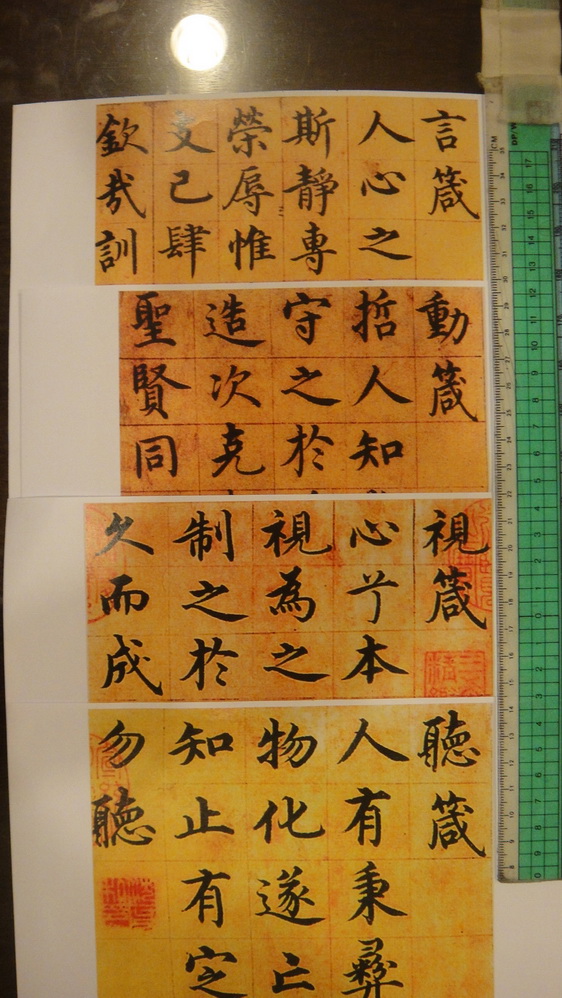 言箴
人心之
斯靜專
榮辱惟
支己肆
欽哉訓
動箴
哲人知
守之於
造次克
聖賢同
視箴
心兮本
視為之
制之於
久而成
聽箴
人有秉彝
物化遂亡
知止有定
勿聽